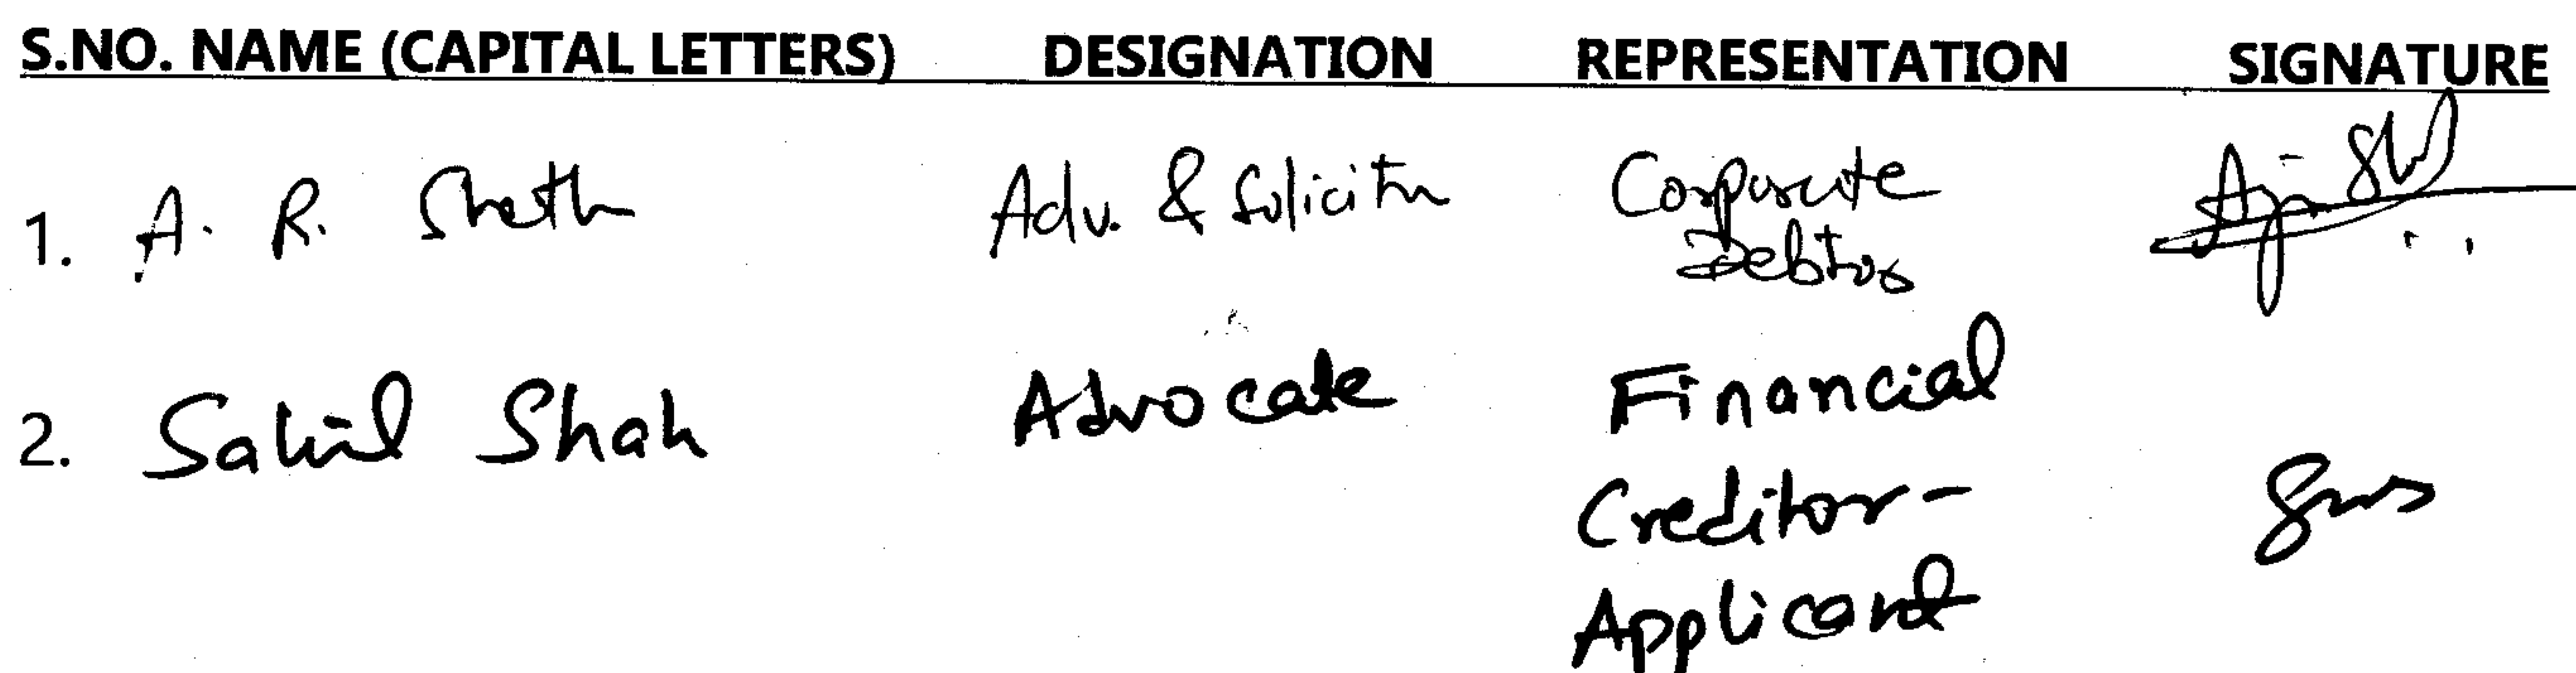 S.NO. NAME (CAPITAL LETTERS) DESIGNATION REPRESENTATION SIGNATURE
1. A. R. Sheth Adv. & Solicitor Corporate
Debtor
2. Sahil Shah Advocate Financial
Creditor -
Applicant